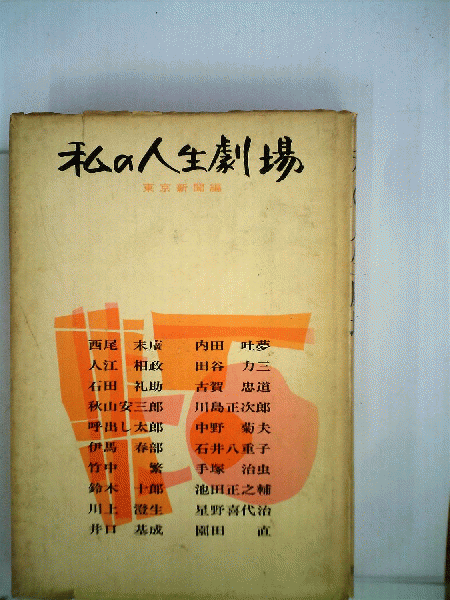 私の人生劇場
東京新聞編
西尾 末廣 内田 吐夢
入江 相政 田谷 力三
石田 礼助 古賀 忠道
秋山安三郎 川島正次郎
呼出し太郎 中野 菊夫
伊馬 春部 石井八重子
竹中 繁 手塚 治虫
鈴木 十郎 池田正之輔
川上 澄生 星野喜代治
井口 基成 園田 直